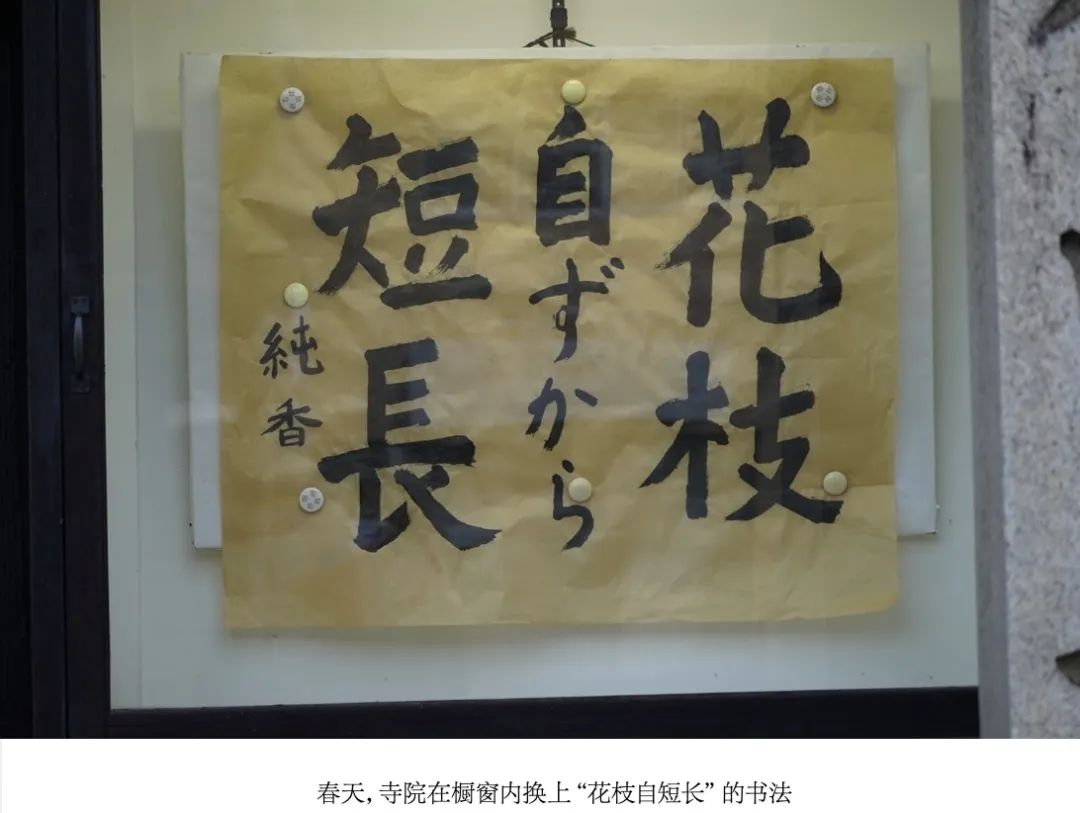 花枝
自ずから
短長
純香
春天，寺院在橱窗内换上“花枝自短长”的书法